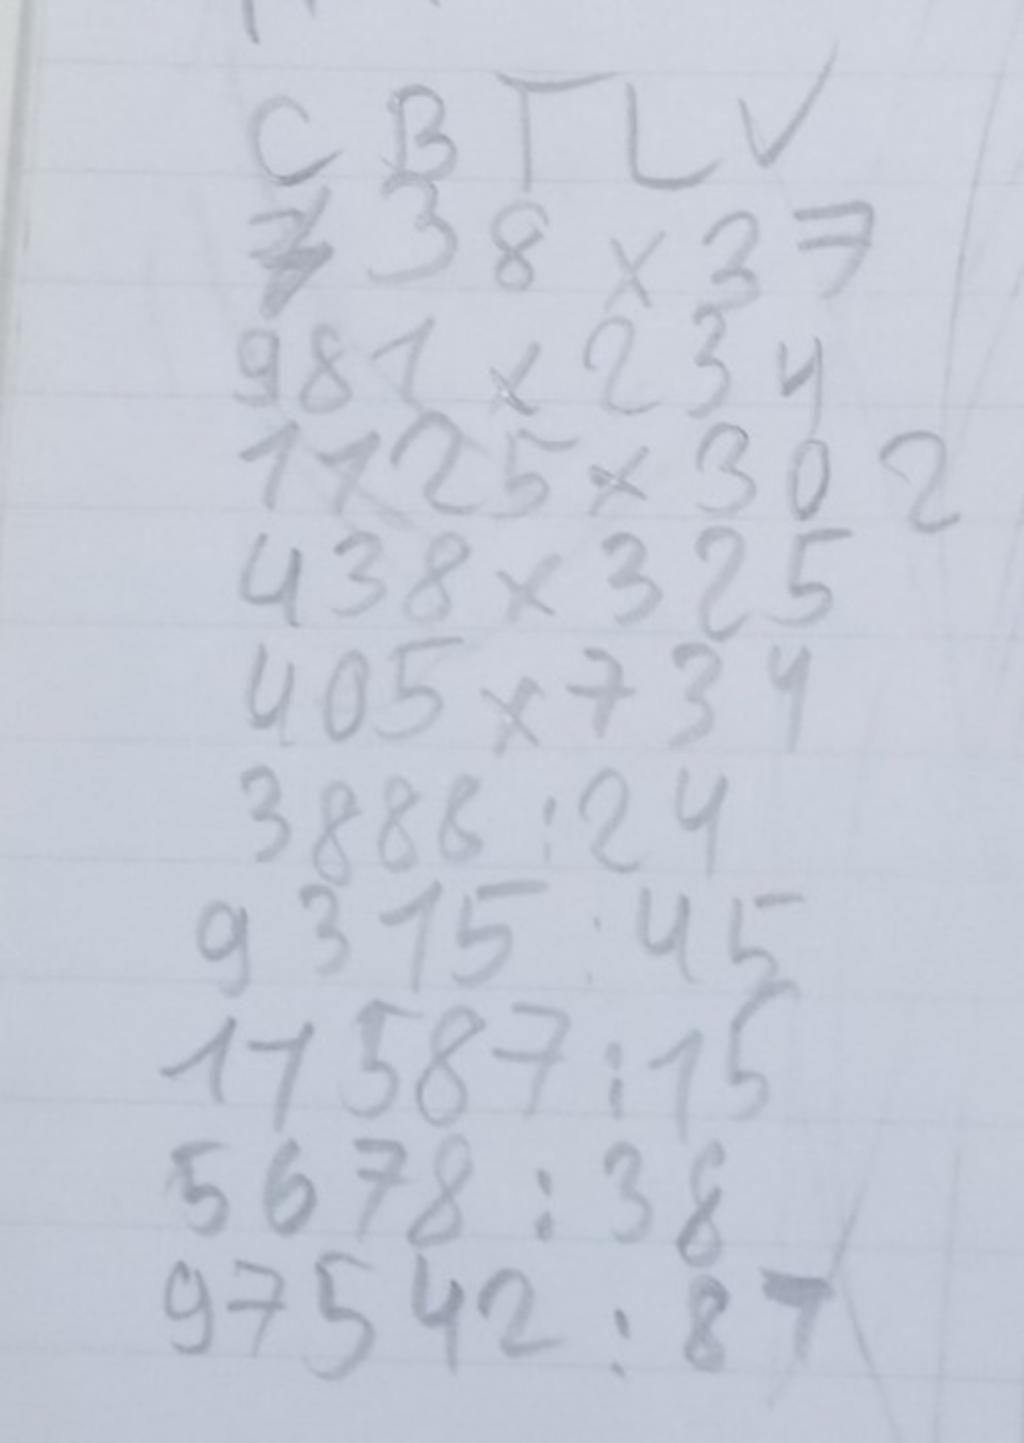 C B T L V
738 x 37
981 x 234
1125 x 302
438 x 325
405 x 734
3888 : 24
9315 : 45
11587 : 15
5678 : 38
97542 : 87